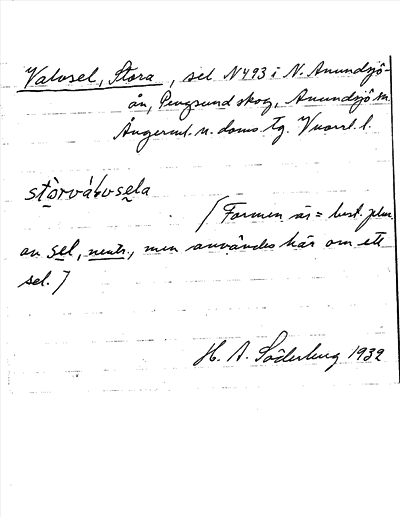 Valvsel, Stora, sel N 493 i N. Anundsjö-
ån, Pengsund skog, Anundsjö sn.
Ångerml. n. doms. tg. Vnorrl. l.
stòrválvsela
[Formen är = best. plur.
av sel, neutr., men användes här om ett
sel.]
H. A. Söderberg 1932